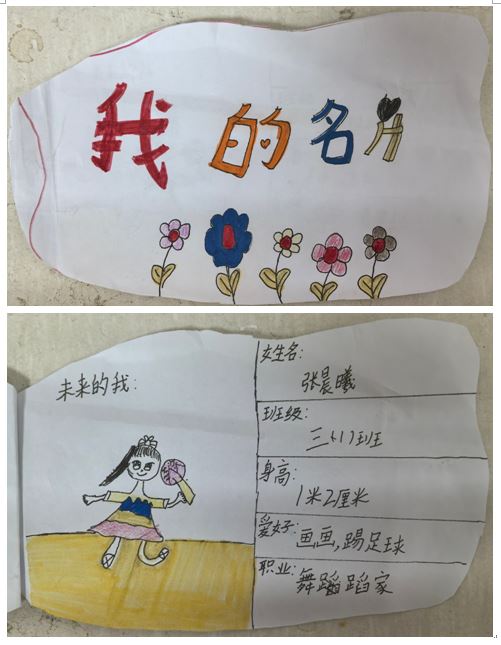 我的名片
未来的我:
姓名:
张晨曦
班级:
三(1)班
身高:
1米2厘米
爱好:
画画,踢足球
职业:
舞蹈蹈家